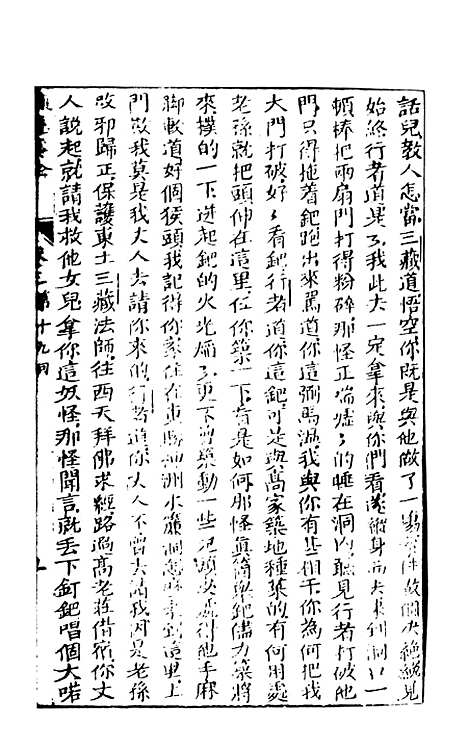 話兒教人怎當三藏道悟空你既是與他做了一塲一發做個決絕纔見
始終行者道是了我此去一定拿來與你們看遂縱身而去來到洞口一
頓棒把兩扇門打得粉碎那怪正喘噓噓的睡在洞內聽見行者打破他
門只得拖着鈀跑出來罵道你這弼馬溫我與你有些相干你為何把我
大門打破好好看鈀行者道你這鈀可是與高家築地種菜的有何用處
老孫就把頭伸在這里任你築一下看是如何那怪真箇舉鈀儘力築將
來撲的一下迸起鈀的火光焰更不曾築動一些兒頭皮諕得他手麻
脚軟道好個猴頭我記得你家住在東勝神洲水簾洞怎麽來到這里上
門欺我莫是我丈人去請你來的行者道你丈人不曾去請我因是老孫
改邪歸正保護東土三藏法師往西天拜佛求經路過高老莊借宿你丈
人說起就請我救他女兒拿你這妖怪那怪聞言就丟下釘鈀唱個大喏
第十九回